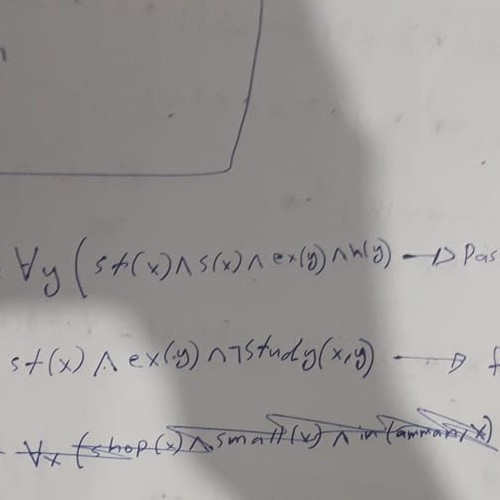 ∀y (st(x) ∧ s(x) ∧ ex(y) ∧ h(y) → Pas
st(x) ∧ ex(y) ∧ ¬study(x,y) → f
∀x (shop(x) ∧ small(x) ∧ in(amman,x)